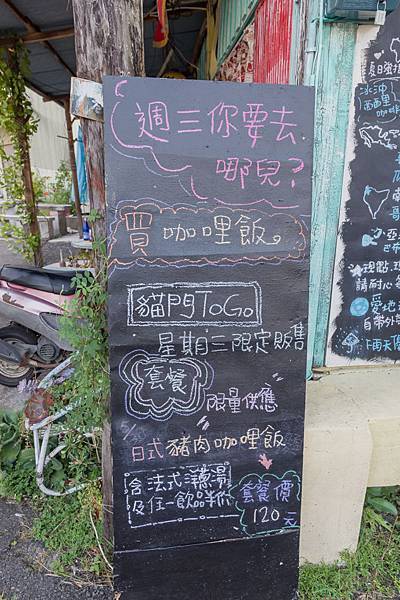 週三你要去
哪兒?
買咖哩飯。
貓門ToGo
星期三限定販售
套餐
限量供應
日式豬肉咖哩飯
含法式洋蔥湯
及任一飲品半价
套餐價
120元
夏日強
冰沖
西西里
咖啡
現點.現
請耐心
愛地
自帶外
下雨天